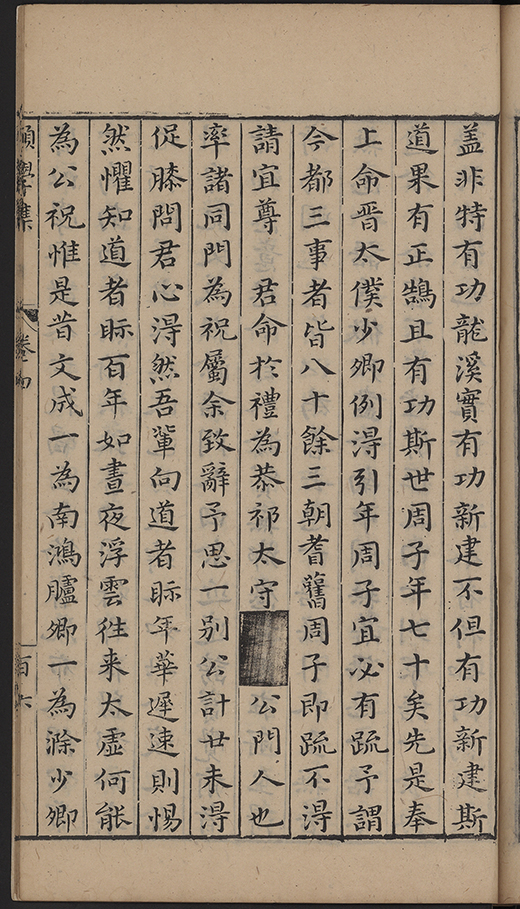 盖非特有功龍溪實有功新建不但有功新建斯
道果有正鵠且有功斯世周子年七十矣先是奉
上命晋太僕少卿例得引年周子宜必有疏予謂
今都三事者皆八十餘三朝耆舊周子即疏不得
請宜尊 君命於禮為恭祁太守 公門人也
率諸同門為祝屬余致辭予思一别公計廿未得
促膝問君心得然吾輩向道者眎年華遲速則惕
然懼知道者眎百年如晝夜浮雲徃来太虛何能
為公祝惟是昔文成一為南鴻臚卿一為滁少卿
願學集 卷四 百六